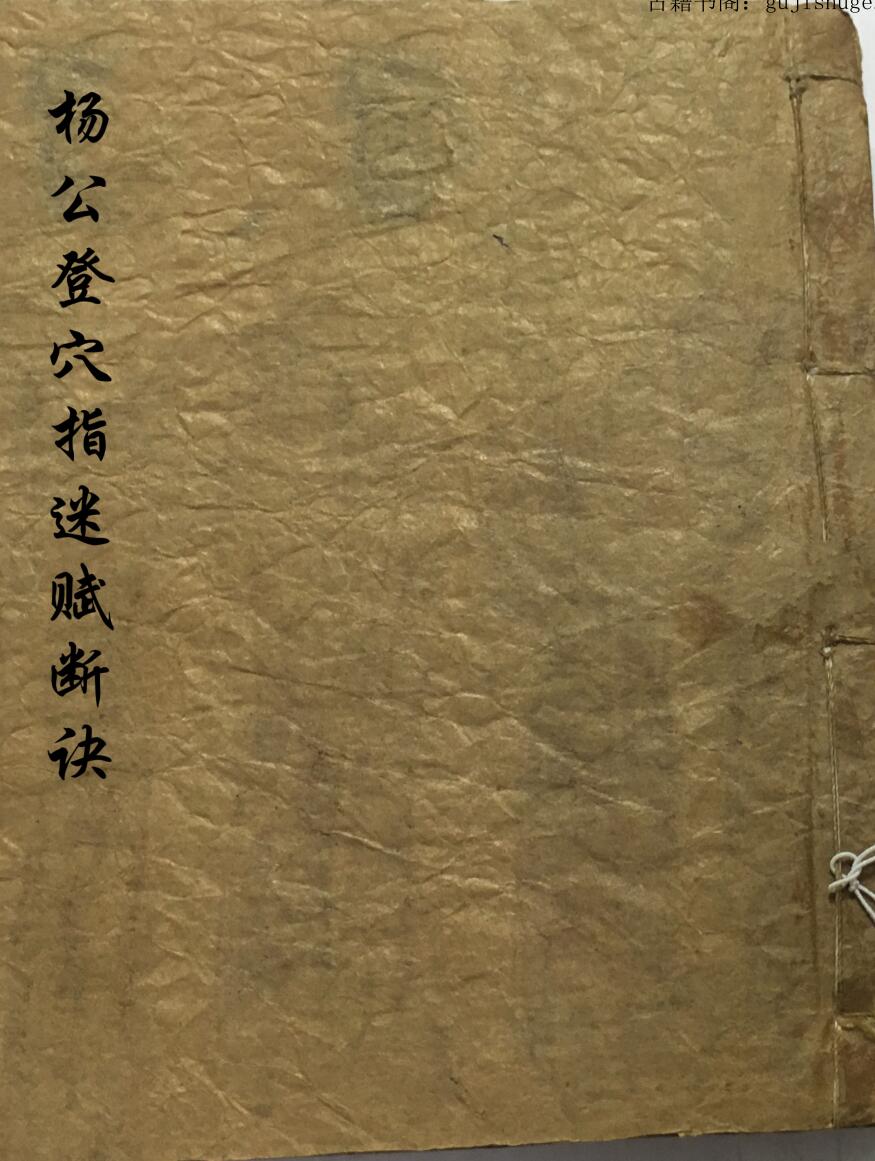 古籍书阁：gujishuge
杨公登穴指迷赋断诀